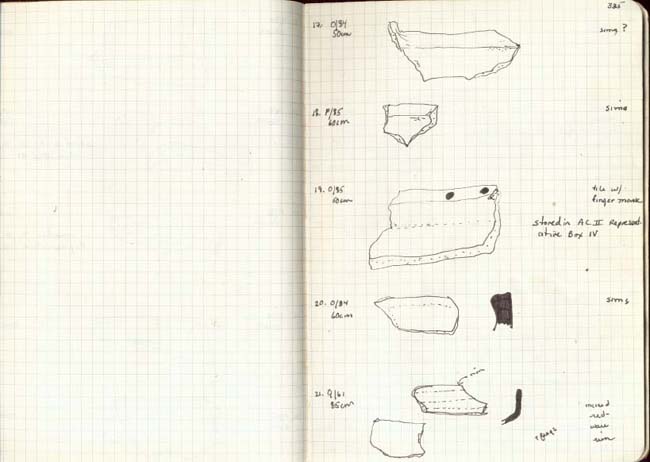 335
17. O/84
50cm
sima ?
18. P/85
60cm
sima
19. O/85
60cm
tile w/
finger marks
stored in AC II Represent-
ative Box IV
20. O/84
60cm
sima
21. Q/61
85cm
rim
2 frags
incised
red-
ware
rim